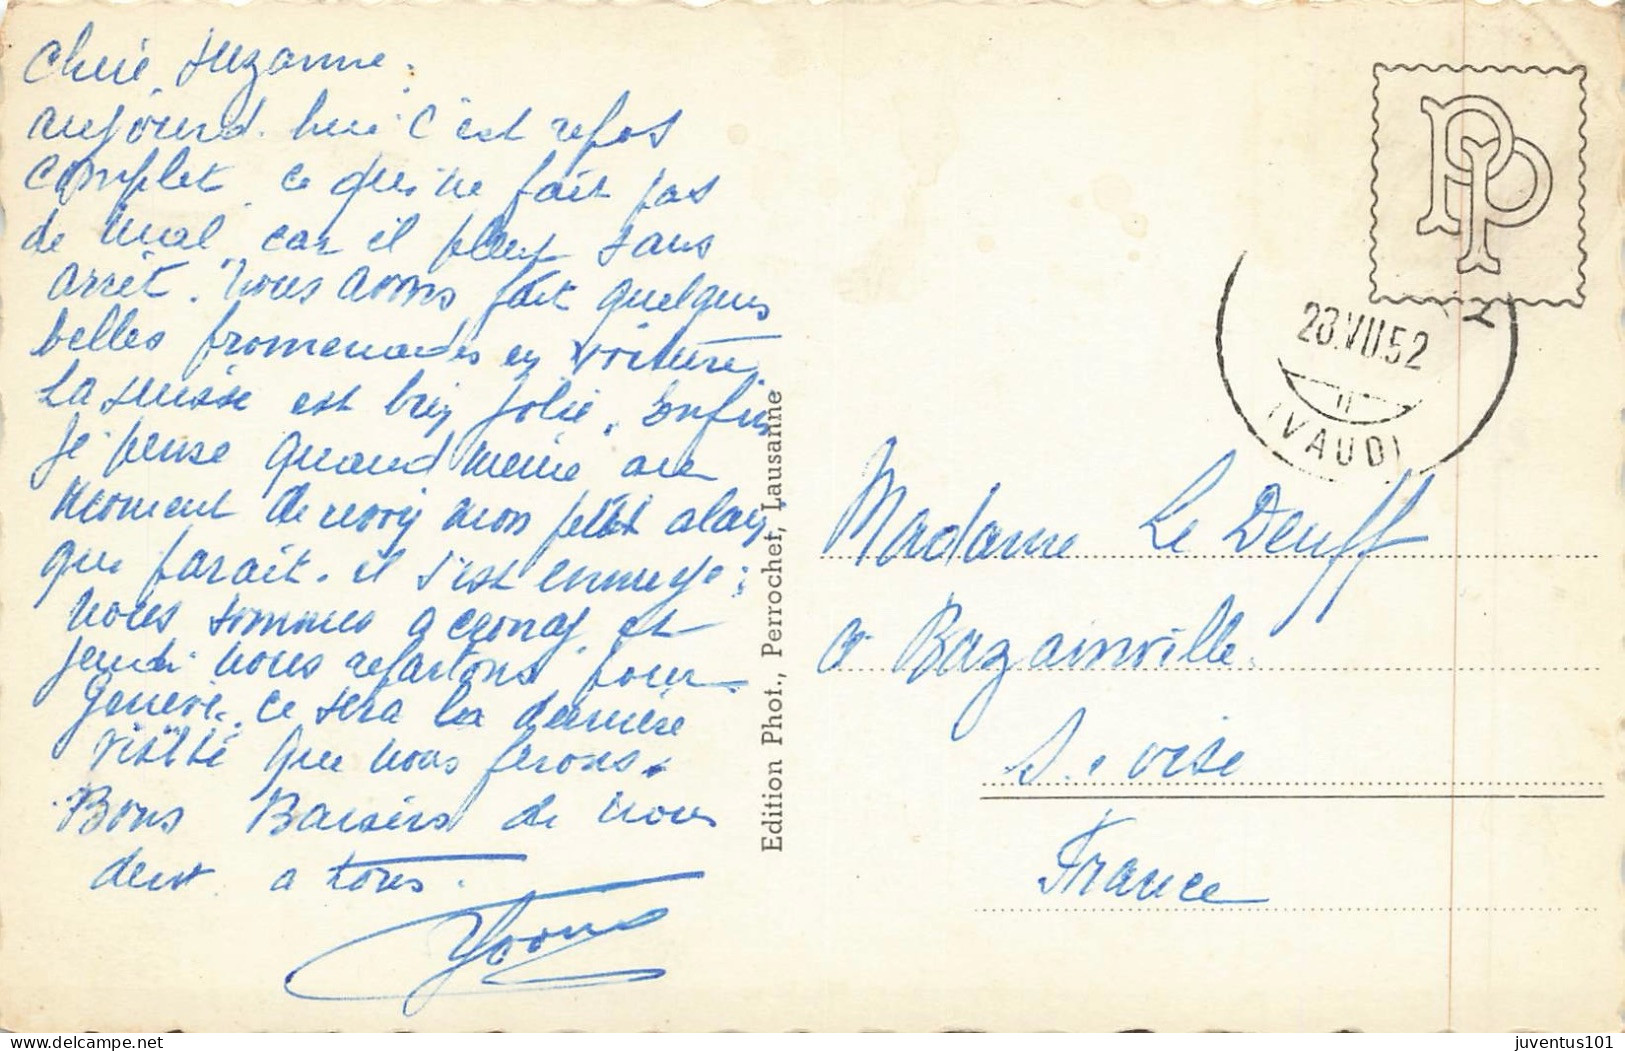 Chère Suzanne.
aujourd. hui c'est repos
complet. ce qui ne fait pas
de mal, car il pleut sans
arrêt. Nous avons fait quelques
belles promenades en voiture,
La suisse est bien jolie. Enfin
je pense quand même au
moment de revoir mon petit alain
qui parait. il s'est ennuyé;
nous sommes a et
jeudi nous repartons pour
Genève, ce sera la dernière
visite que nous ferons.
Bons Baisers de nous
deux a tous.
Yvonne
Edition Phot., Perrochet, Lausanne
PP
28.VII.52
(VAUD)
Madame Le Deuff
a Bazainville
S. oise
France
juventus101